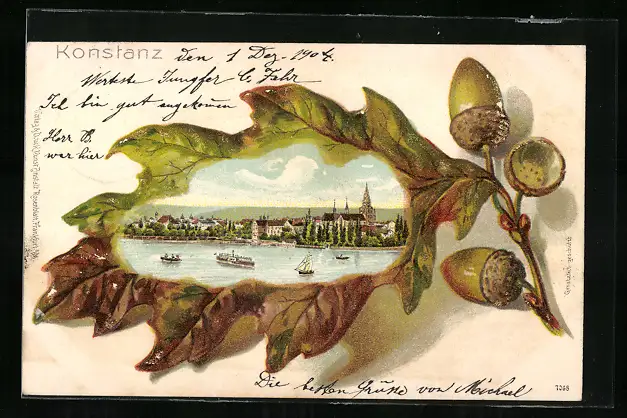 Konstanz den 1 Dez. 1904.
Werteste Jungfer C. Fehr
Ich bin gut angekommen
Herr
war hier
Die besten Grüsse von Michael
7068